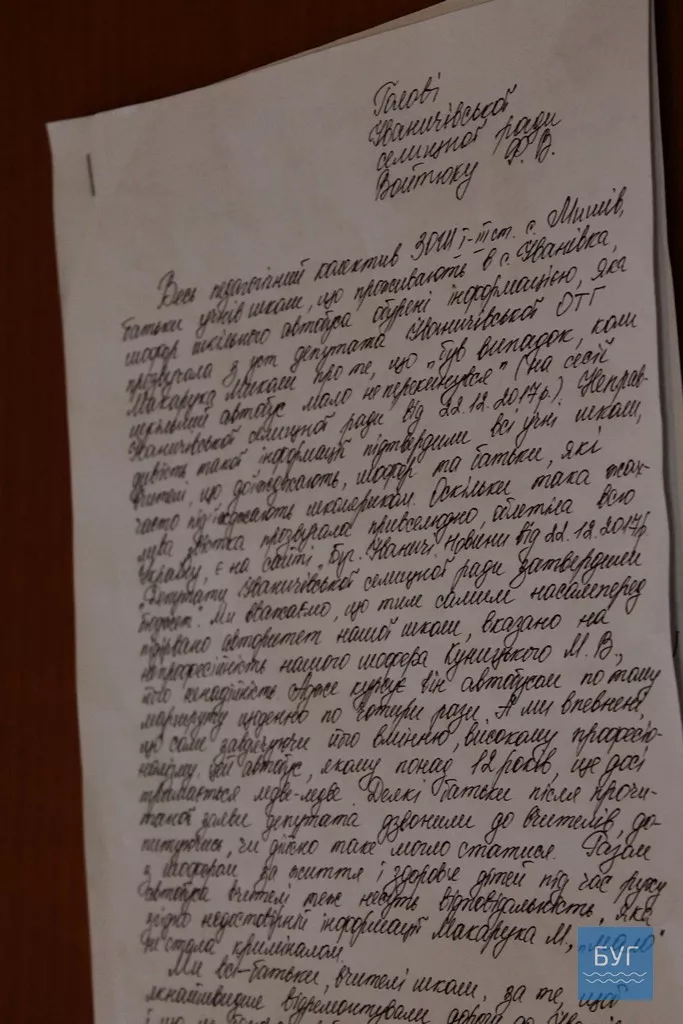 Голові
Іваничівської
селищної ради
Войтюку Ф. В.
Весь педагогічний колектив ЗОШ І-ІІІ ст. с. Мишів,
батьки учнів школи, що проживають в с. Іванівка,
шофер шкільного автобуса обурені інформацією, яка
прозвучала з уст депутата Іваничівської ОТГ
Макарука Миколи про те, що „був випадок, коли
шкільний автобус мало не перекинувся" (на сесії
Іваничівської селищної ради від 22.12.2017р.). Неправ-
дивість такої інформації підтвердили всі учні школи,
вчителі, що доїжджають, шофер та батьки, які
часто під'їжджають школяриком. Оскільки така жах-
лива звістка прозвучала привселюдно, облетіла всю
Україну, є на сайті „Буг. Іваничі. Новини від 22.12.2017р.
„Депутати Іваничівської селищної ради затвердили
бюджет". Ми вважаємо, що тим самим насамперед
підірвано авторитет нашої школи, вказано на
непрофесійність нашого шофера Куницького М. В.,
його ненадійність. Адже курсує він автобусом по тому
маршруту щоденно по чотири рази. А ми впевнені,
що саме завдячуючи його вмінню, високому професіо-
налізму, цей автобус, якому понад 12 років, ще досі
тримається ледве-ледве. Деякі батьки після прочи-
таної заяви депутата дзвонили до вчителів, до-
питуючись, чи дійсно таке могло статися. Разом
з шофером за життя і здоров'є дітей під час руху
автобуса вчителі теж несуть відповідальність, яка
згідно недостовірної інформації Макарука М. „мало"
не стала криміналом.
Ми всі - батьки, вчителі школи, за те, щоб
якнайшвидше відремонтували дорогу до
БУГ